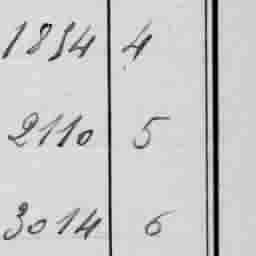 1854 4
2110 5
3014 6